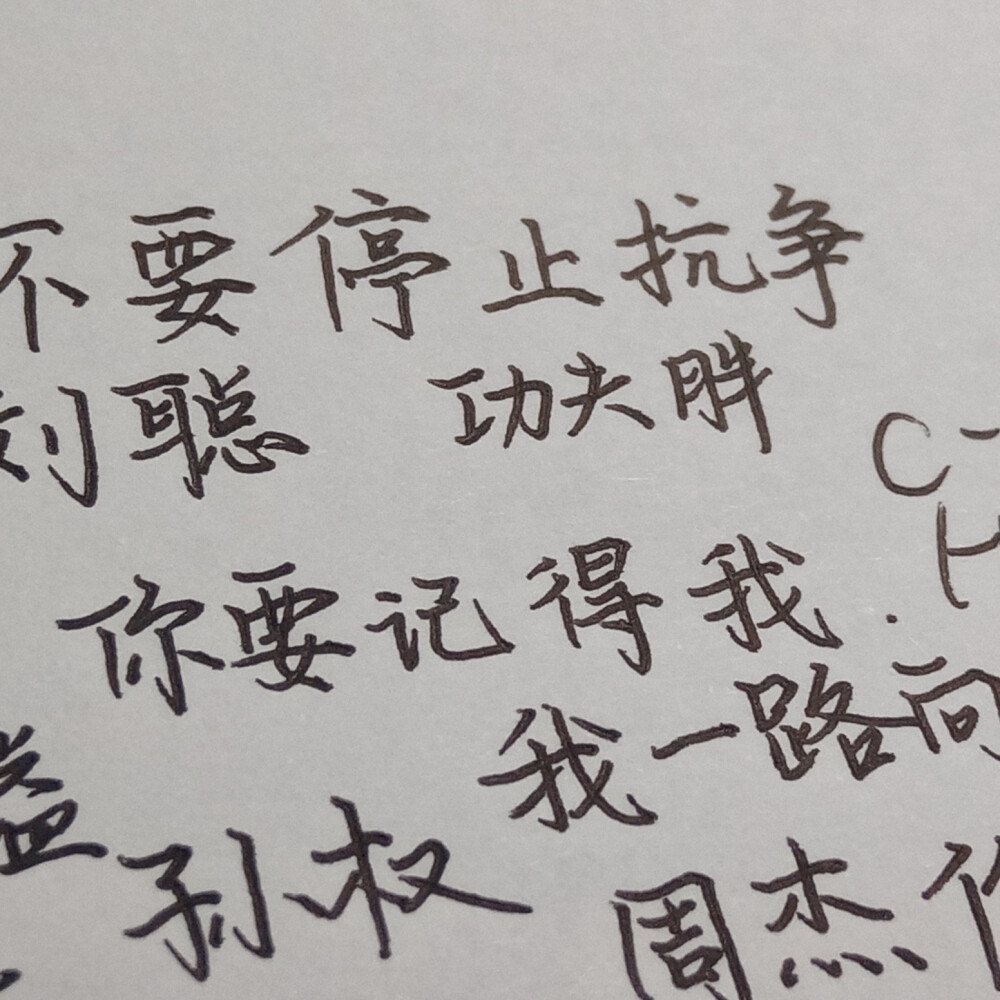 不要停止抗争
刘聪 功夫胖
C
你要记得我.
我一路向
益
孙权
周杰伦